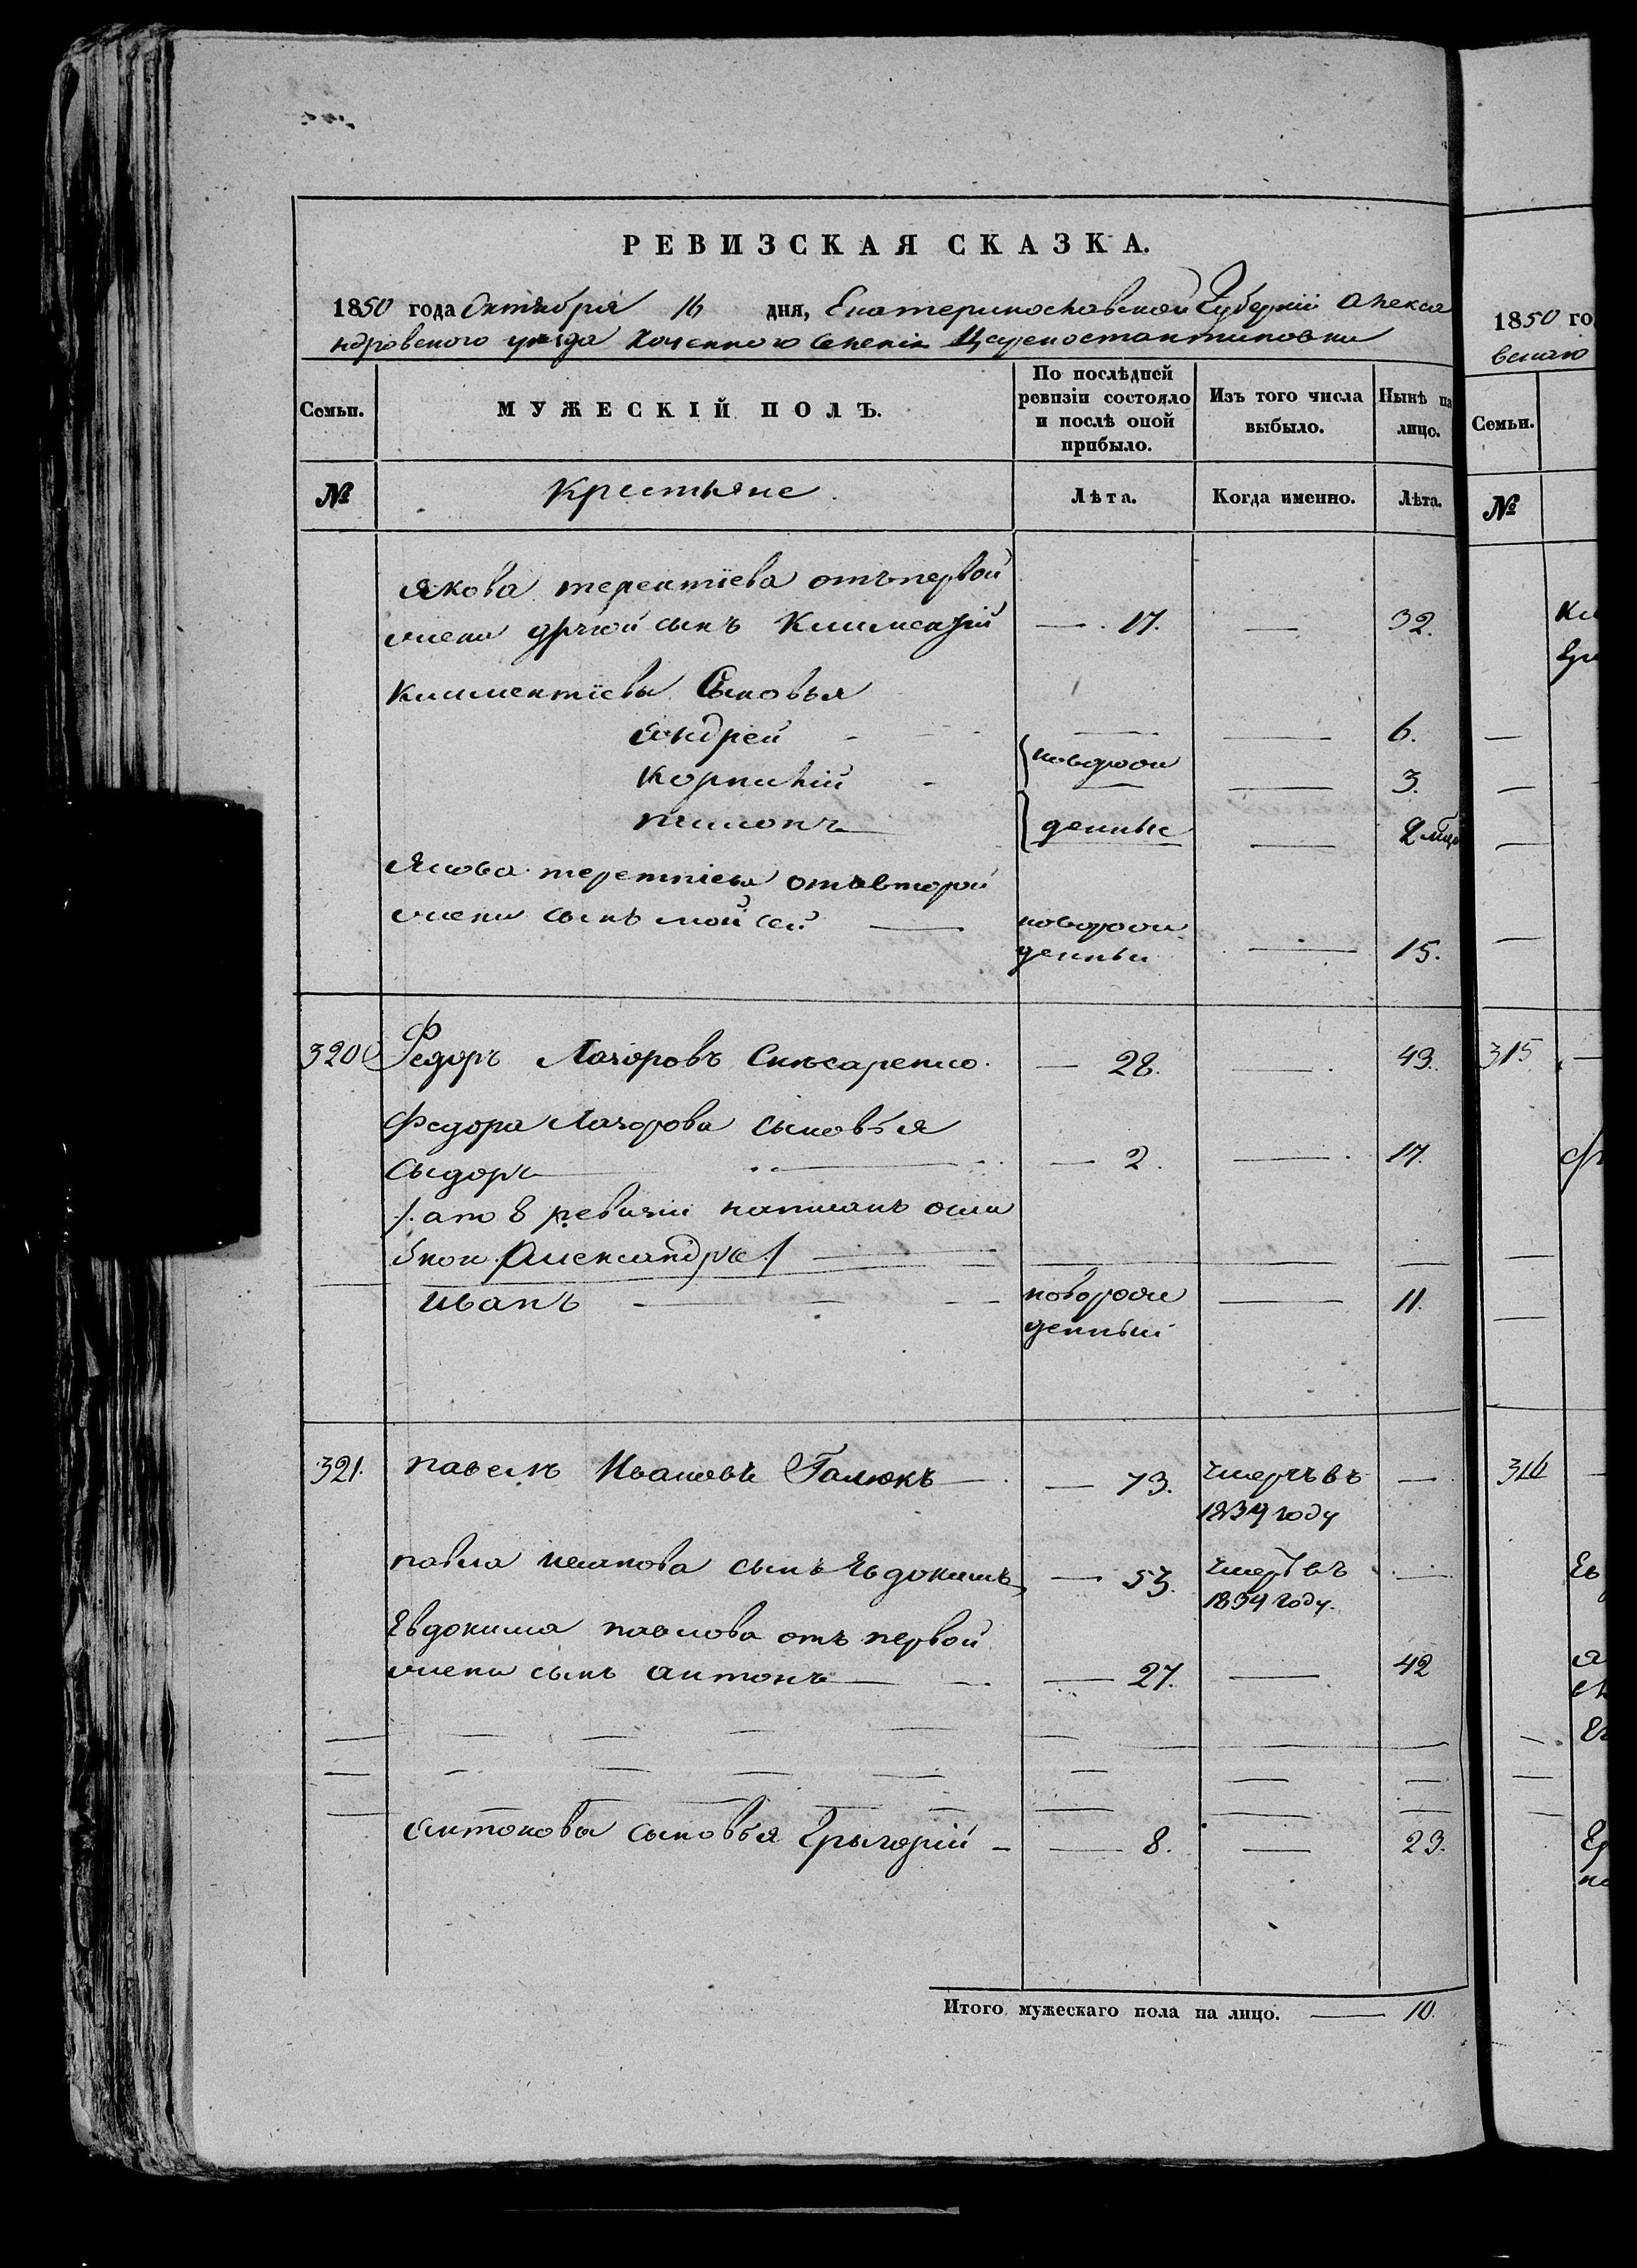 РЕВИЗСКАЯ СКАЗКА.
1850 года Октября 16 дня, Екатеринославской Губерніи Алекса
ндровского уезда Казенного Селенія Цареконстантиновки
Семьи. МУЖЕСКІЙ ПОЛЪ. По послѣдней ревизіи состояло и послѣ оной прибыло. Изъ того числа выбыло. Нынѣ на лицо.
№ Крестьяне Лѣта. Когда именно. Лѣта.
Якова терентіева отъ первой
жены другой сынъ Климентій — 17. — 32.
Климентіевы Сыновья
Андрей — — 6.
Корнилій новорож — 3.
пимонъ денные — 2 мец
Якова терентіева отъ второй
жены сынъ мойсей — новорож
денный — 15.
320 Федоръ Лазоровъ Слѣсаренко. — 28. — 43.
Федора Лазорова сыновья
Сыдоръ — 2. — 17.
/. а по 8 ревизіи написанъ оши
бкою Александръ ./
иванъ — новорож — 11.
денный
321. павелъ Ивановъ Галюкъ — 73. умеръ въ —
1839 году
павла иванова сынъ Евдокимъ — 53. умеръ въ —
1834 году.
Евдокима павлова отъ первой
жены сынъ антонъ — 27. — 42
антоновы сыновья Грыгорій — 8. — 23.
Итого мужескаго пола на лицо. — 10.
1850 го
Семьи.
№
315